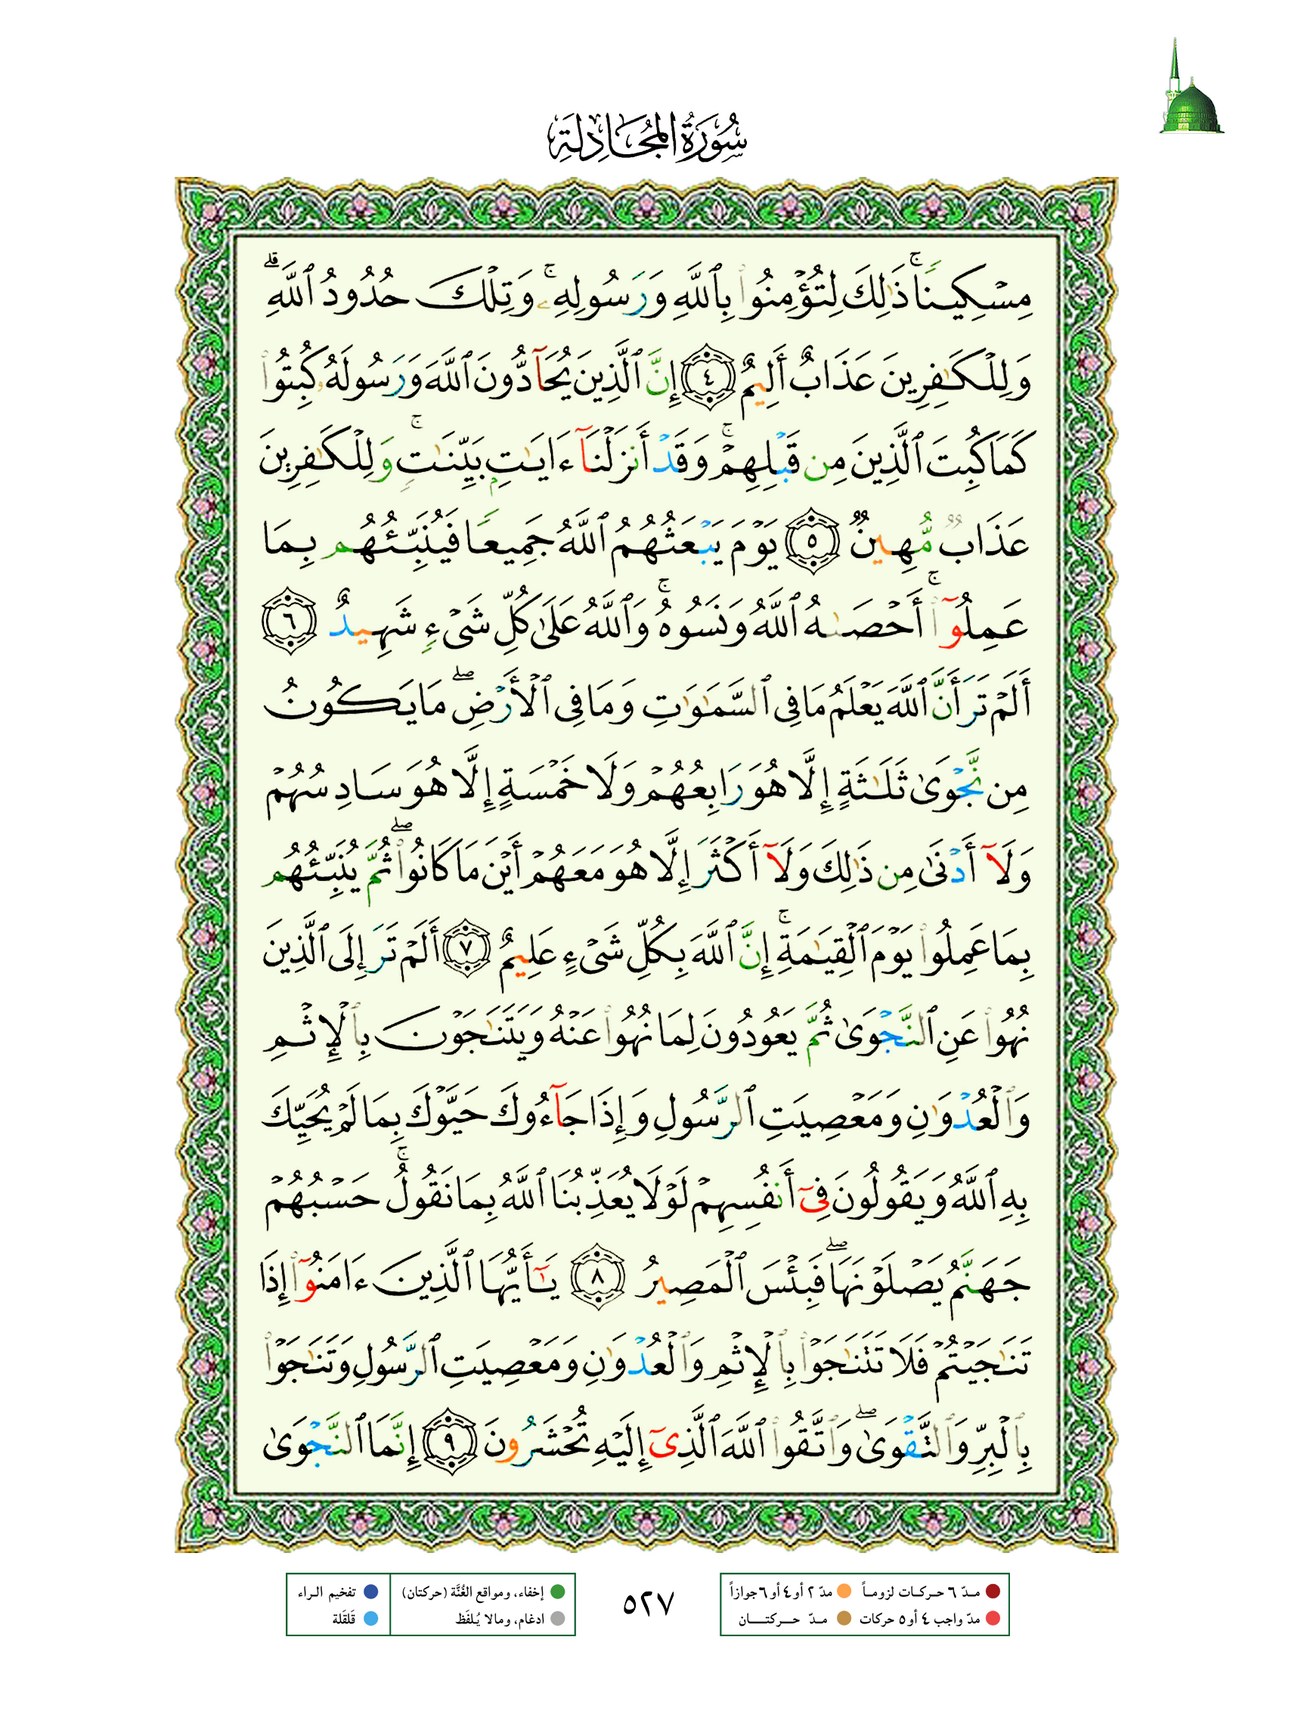 سُورَةُ المُجَادلَة
مِسْكِينٗاۚ ذَٰلِكَ لِتُؤْمِنُوا۟ بِٱللَّهِ وَرَسُولِهِۦۚ وَتِلْكَ حُدُودُ ٱللَّهِۗ
وَلِلْكَـٰفِرِينَ عَذَابٌ أَلِيمٌ ٤ إِنَّ ٱلَّذِينَ يُحَآدُّونَ ٱللَّهَ وَرَسُولَهُۥ كُبِتُوا۟
كَمَا كُبِتَ ٱلَّذِينَ مِن قَبْلِهِمْۚ وَقَدْ أَنزَلْنَآ ءَايَـٰتٍۭ بَيِّنَـٰتٍۚ وَلِلْكَـٰفِرِينَ
عَذَابٌ مُّهِينٌ ٥ يَوْمَ يَبْعَثُهُمُ ٱللَّهُ جَمِيعًا فَيُنَبِّئُهُم بِمَا
عَمِلُوٓا۟ۚ أَحْصَىٰهُ ٱللَّهُ وَنَسُوهُۚ وَٱللَّهُ عَلَىٰ كُلِّ شَىْءٍ شَهِيدٌ ٦
أَلَمْ تَرَ أَنَّ ٱللَّهَ يَعْلَمُ مَا فِى ٱلسَّمَـٰوَٰتِ وَمَا فِى ٱلْأَرْضِۖ مَا يَكُونُ
مِن نَّجْوَىٰ ثَلَـٰثَةٍ إِلَّا هُوَ رَابِعُهُمْ وَلَا خَمْسَةٍ إِلَّا هُوَ سَادِسُهُمْ
وَلَآ أَدْنَىٰ مِن ذَٰلِكَ وَلَآ أَكْثَرَ إِلَّا هُوَ مَعَهُمْ أَيْنَ مَا كَانُوا۟ۖ ثُمَّ يُنَبِّئُهُم
بِمَا عَمِلُوا۟ يَوْمَ ٱلْقِيَـٰمَةِۚ إِنَّ ٱللَّهَ بِكُلِّ شَىْءٍ عَلِيمٌ ٧ أَلَمْ تَرَ إِلَى ٱلَّذِينَ
نُهُوا۟ عَنِ ٱلنَّجْوَىٰ ثُمَّ يَعُودُونَ لِمَا نُهُوا۟ عَنْهُ وَيَتَنَـٰجَوْنَ بِٱلْإِثْمِ
وَٱلْعُدْوَٰنِ وَمَعْصِيَتِ ٱلرَّسُولِ وَإِذَا جَآءُوكَ حَيَّوْكَ بِمَا لَمْ يُحَيِّكَ
بِهِ ٱللَّهُ وَيَقُولُونَ فِىٓ أَنفُسِهِمْ لَوْلَا يُعَذِّبُنَا ٱللَّهُ بِمَا نَقُولُۚ حَسْبُهُمْ
جَهَنَّمُ يَصْلَوْنَهَاۖ فَبِئْسَ ٱلْمَصِيرُ ٨ يَـٰٓأَيُّهَا ٱلَّذِينَ ءَامَنُوٓا۟ إِذَا
تَنَـٰجَيْتُمْ فَلَا تَتَنَـٰجَوْا۟ بِٱلْإِثْمِ وَٱلْعُدْوَٰنِ وَمَعْصِيَتِ ٱلرَّسُولِ وَتَنَـٰجَوْا۟
بِٱلْبِرِّ وَٱلتَّقْوَىٰۖ وَٱتَّقُوا۟ ٱللَّهَ ٱلَّذِىٓ إِلَيْهِ تُحْشَرُونَ ٩ إِنَّمَا ٱلنَّجْوَىٰ
مدّ ٦ حركات لزوماً مدّ ٢ أو ٤ أو ٦ جوازاً
مدّ واجب ٤ أو ٥ حركات مدّ حركتان
٥٢٧
إخفاء، ومواقع الغُنَّة (حركتان) تفخيم الراء
ادغام، ومالا يُلفَظ قلقلة